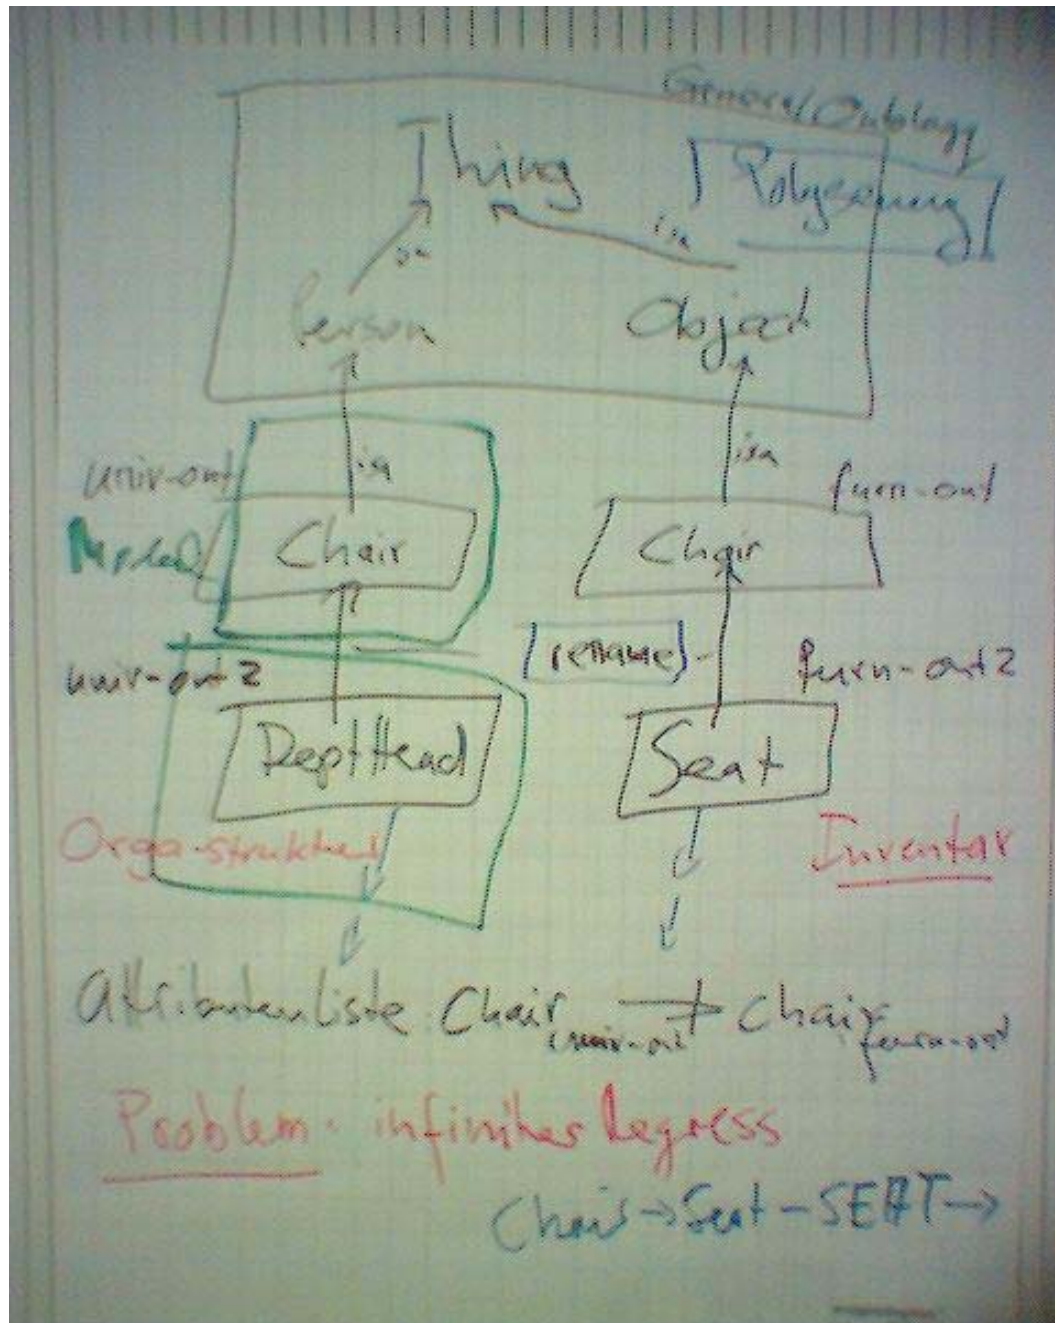 General Ontology
Thing
Polysemy
isa
isa
Person
Object
isa
isa
univ-ont
furn-ont
Chair
Chair
[rename]
univ-ont2
furn-ont2
DeptHead
Seat
Orga-struktur
Inventar
Attributenliste Chair univ-ont → Chair furn-ont
Problem: infiniter Regress
Chair → Seat - SEAT →